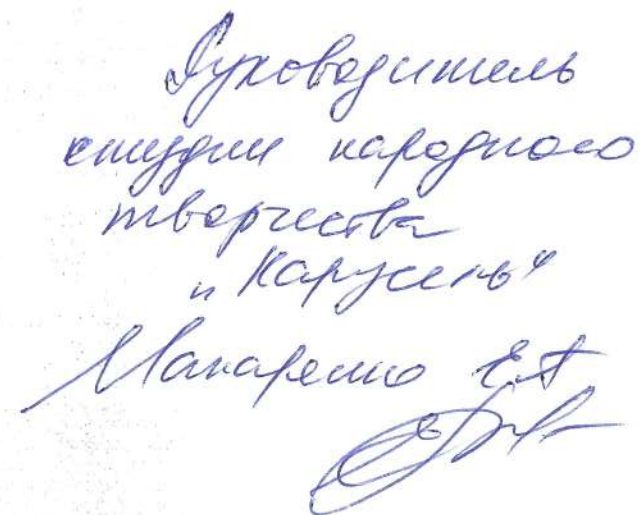 Руководитель
студии народного
творчества
„Карусель“
Макаренко Е.А